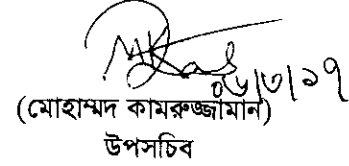 ০৮/৩/১৭
(মোহাম্মদ কামরুজ্জামান)
উপসচিব